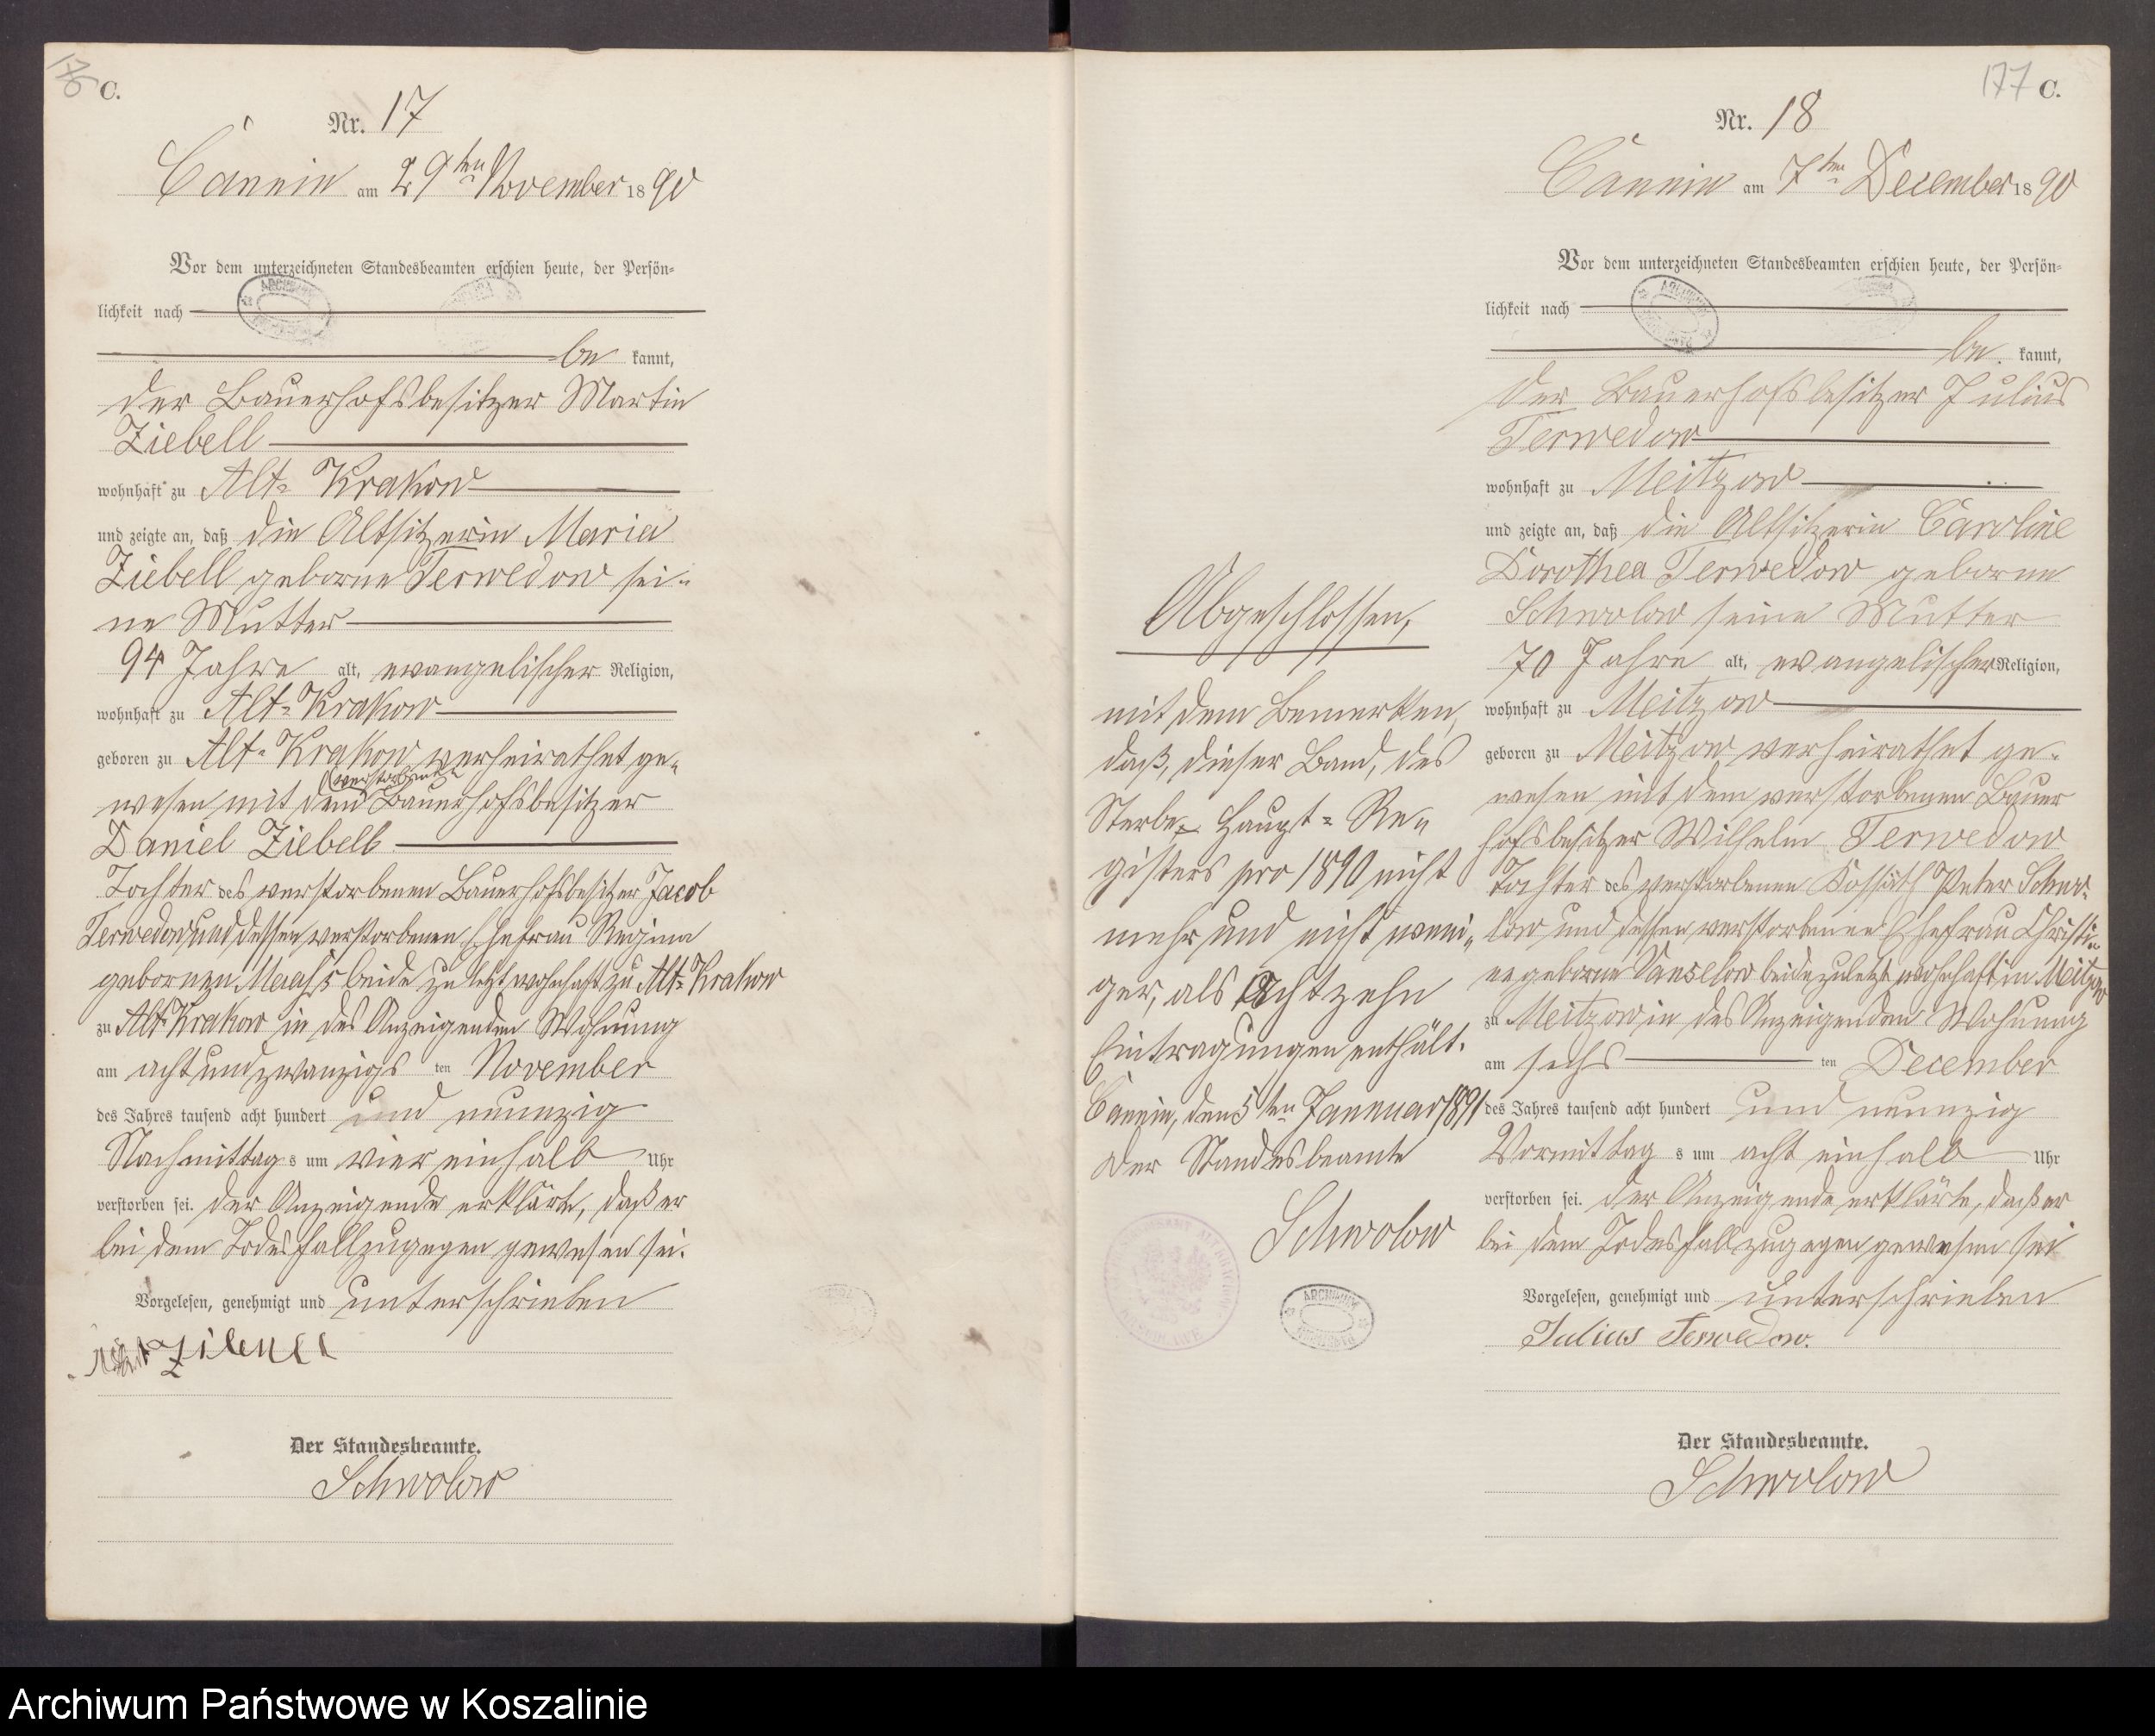 176 C.
Nr. 17
Cannin am 29ten November 1890
Vor dem unterzeichneten Standesbeamten erschien heute, der Persön-
lichkeit nach
be kannt,
der Bauerhofsbesitzer Martin
Ziebell
wohnhaft zu Alt-Krakow
und zeigte an, daß die Altsitzerin Maria
Ziebell geborne Terwedow sei-
ne Mutter
94 Jahre alt, evangelischer Religion,
wohnhaft zu Alt-Krakow
geboren zu Alt-Krakow verheirathet ge-
verstorbenen
wesen mit dem Bauerhofsbesitzer
Daniel Ziebell
Tochter des verstorbenen Bauerhofsbesitzer Jacob
Terwedow und dessen verstorbenen Ehefrau Regina
gebornen Maass beide zuletzt wohnhaft zu Alt-Krakow
zu Alt-Krakow in des Anzeigenden Wohnung
am achtundzwanzigs ten November
des Jahres tausend acht hundert und neunzig
Nachmittag s um vier einhalb Uhr
verstorben sei. Der Anzeigende erklärte, daß er
bei dem Todesfall zugegen gewesen sei.
Vorgelesen, genehmigt und unterschrieben
Ziebell
Der Standesbeamte.
Schwolow
Abgeschlossen,
mit dem Bemerken,
daß, dieser Band, des
Sterbe-Haupt-Re-
gisters pro 1890 nicht
mehr und nicht weni-
ger, als achtzehn
Eintragungen enthält.
Cannin, den 5ten Januar 1891
Der Standesbeamte
Schwolow
ARCHIWUM
177 C.
Nr. 18
Cannin am 7ten December 1890
Vor dem unterzeichneten Standesbeamten erschien heute, der Persön-
lichkeit nach
be kannt,
Der Bauerhofsbesitzer Julius
Terwedow
wohnhaft zu Meitzow
und zeigte an, daß die Altsitzerin Caroline
Dorothea Terwedow geborne
Schwolow seine Mutter
70 Jahre alt, evangelischer Religion,
wohnhaft zu Meitzow
geboren zu Meitzow verheirathet ge-
wesen mit dem verstorbenen Bauer
hofsbesitzer Wilhelm Terwedow
Tochter des verstorbenen Kossäth Peter Schwo-
low und dessen verstorbenen Ehefrau Christi-
ne geborne Vanselow beide zuletzt wohnhaft in Meitzow
zu Meitzow in des Anzeigenden Wohnung
am sechs ten December
des Jahres tausend acht hundert und neunzig
Vormittag s um acht einhalb Uhr
verstorben sei. Der Anzeigende erklärte, daß er
bei dem Todesfall zugegen gewesen sei
Vorgelesen, genehmigt und unterschrieben
Julius Terwedow.
Der Standesbeamte.
Schwolow
Archiwum Państwowe w Koszalinie